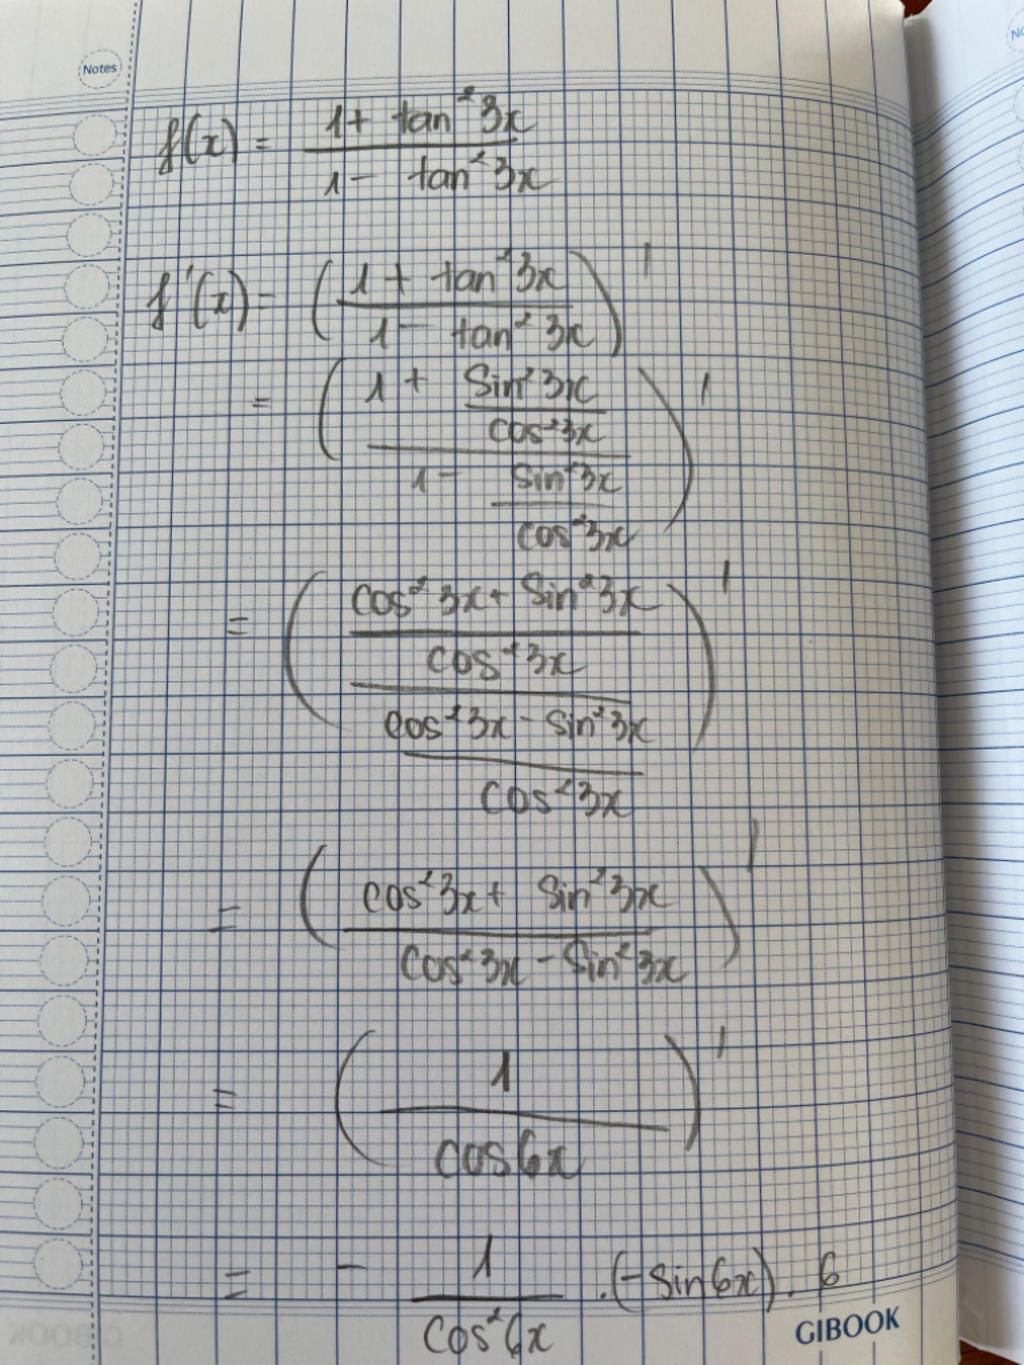 Notes
f(x) = (1 + tan²3x)/(1 - tan²3x)
f'(x) = ((1 + tan²3x)/(1 - tan²3x))'
= ((1 + sin²3x/cos²3x)/(1 - sin²3x/cos²3x))'
= (((cos²3x + sin²3x)/cos²3x)/((cos²3x - sin²3x)/cos²3x))'
= ((cos²3x + sin²3x)/(cos²3x - sin²3x))'
= (1/cos6x)'
= - 1/cos²6x .(-sin6x). 6
GIBOOK